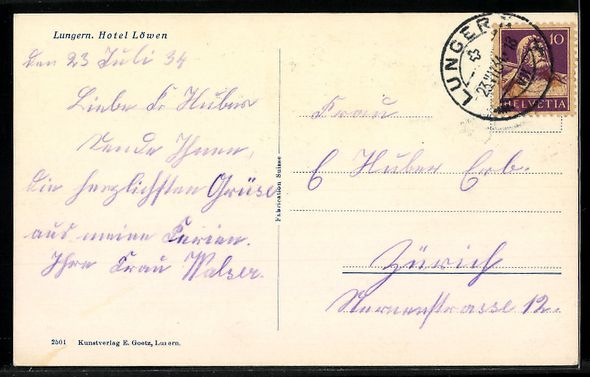 Lungern. Hotel Löwen
den 23 Juli 34
Liebe Fr. Huber
Sende Ihnen,
die herzlichsten Grüse
aus meine Ferien.
Ihre Frau Walser.
2501 Kunstverlag E. Goetz, Luzern.
Fabrication Suisse
LUNGERN
10
HELVETIA
Frau
E Huber Erb.
Zürich
strasse 12.